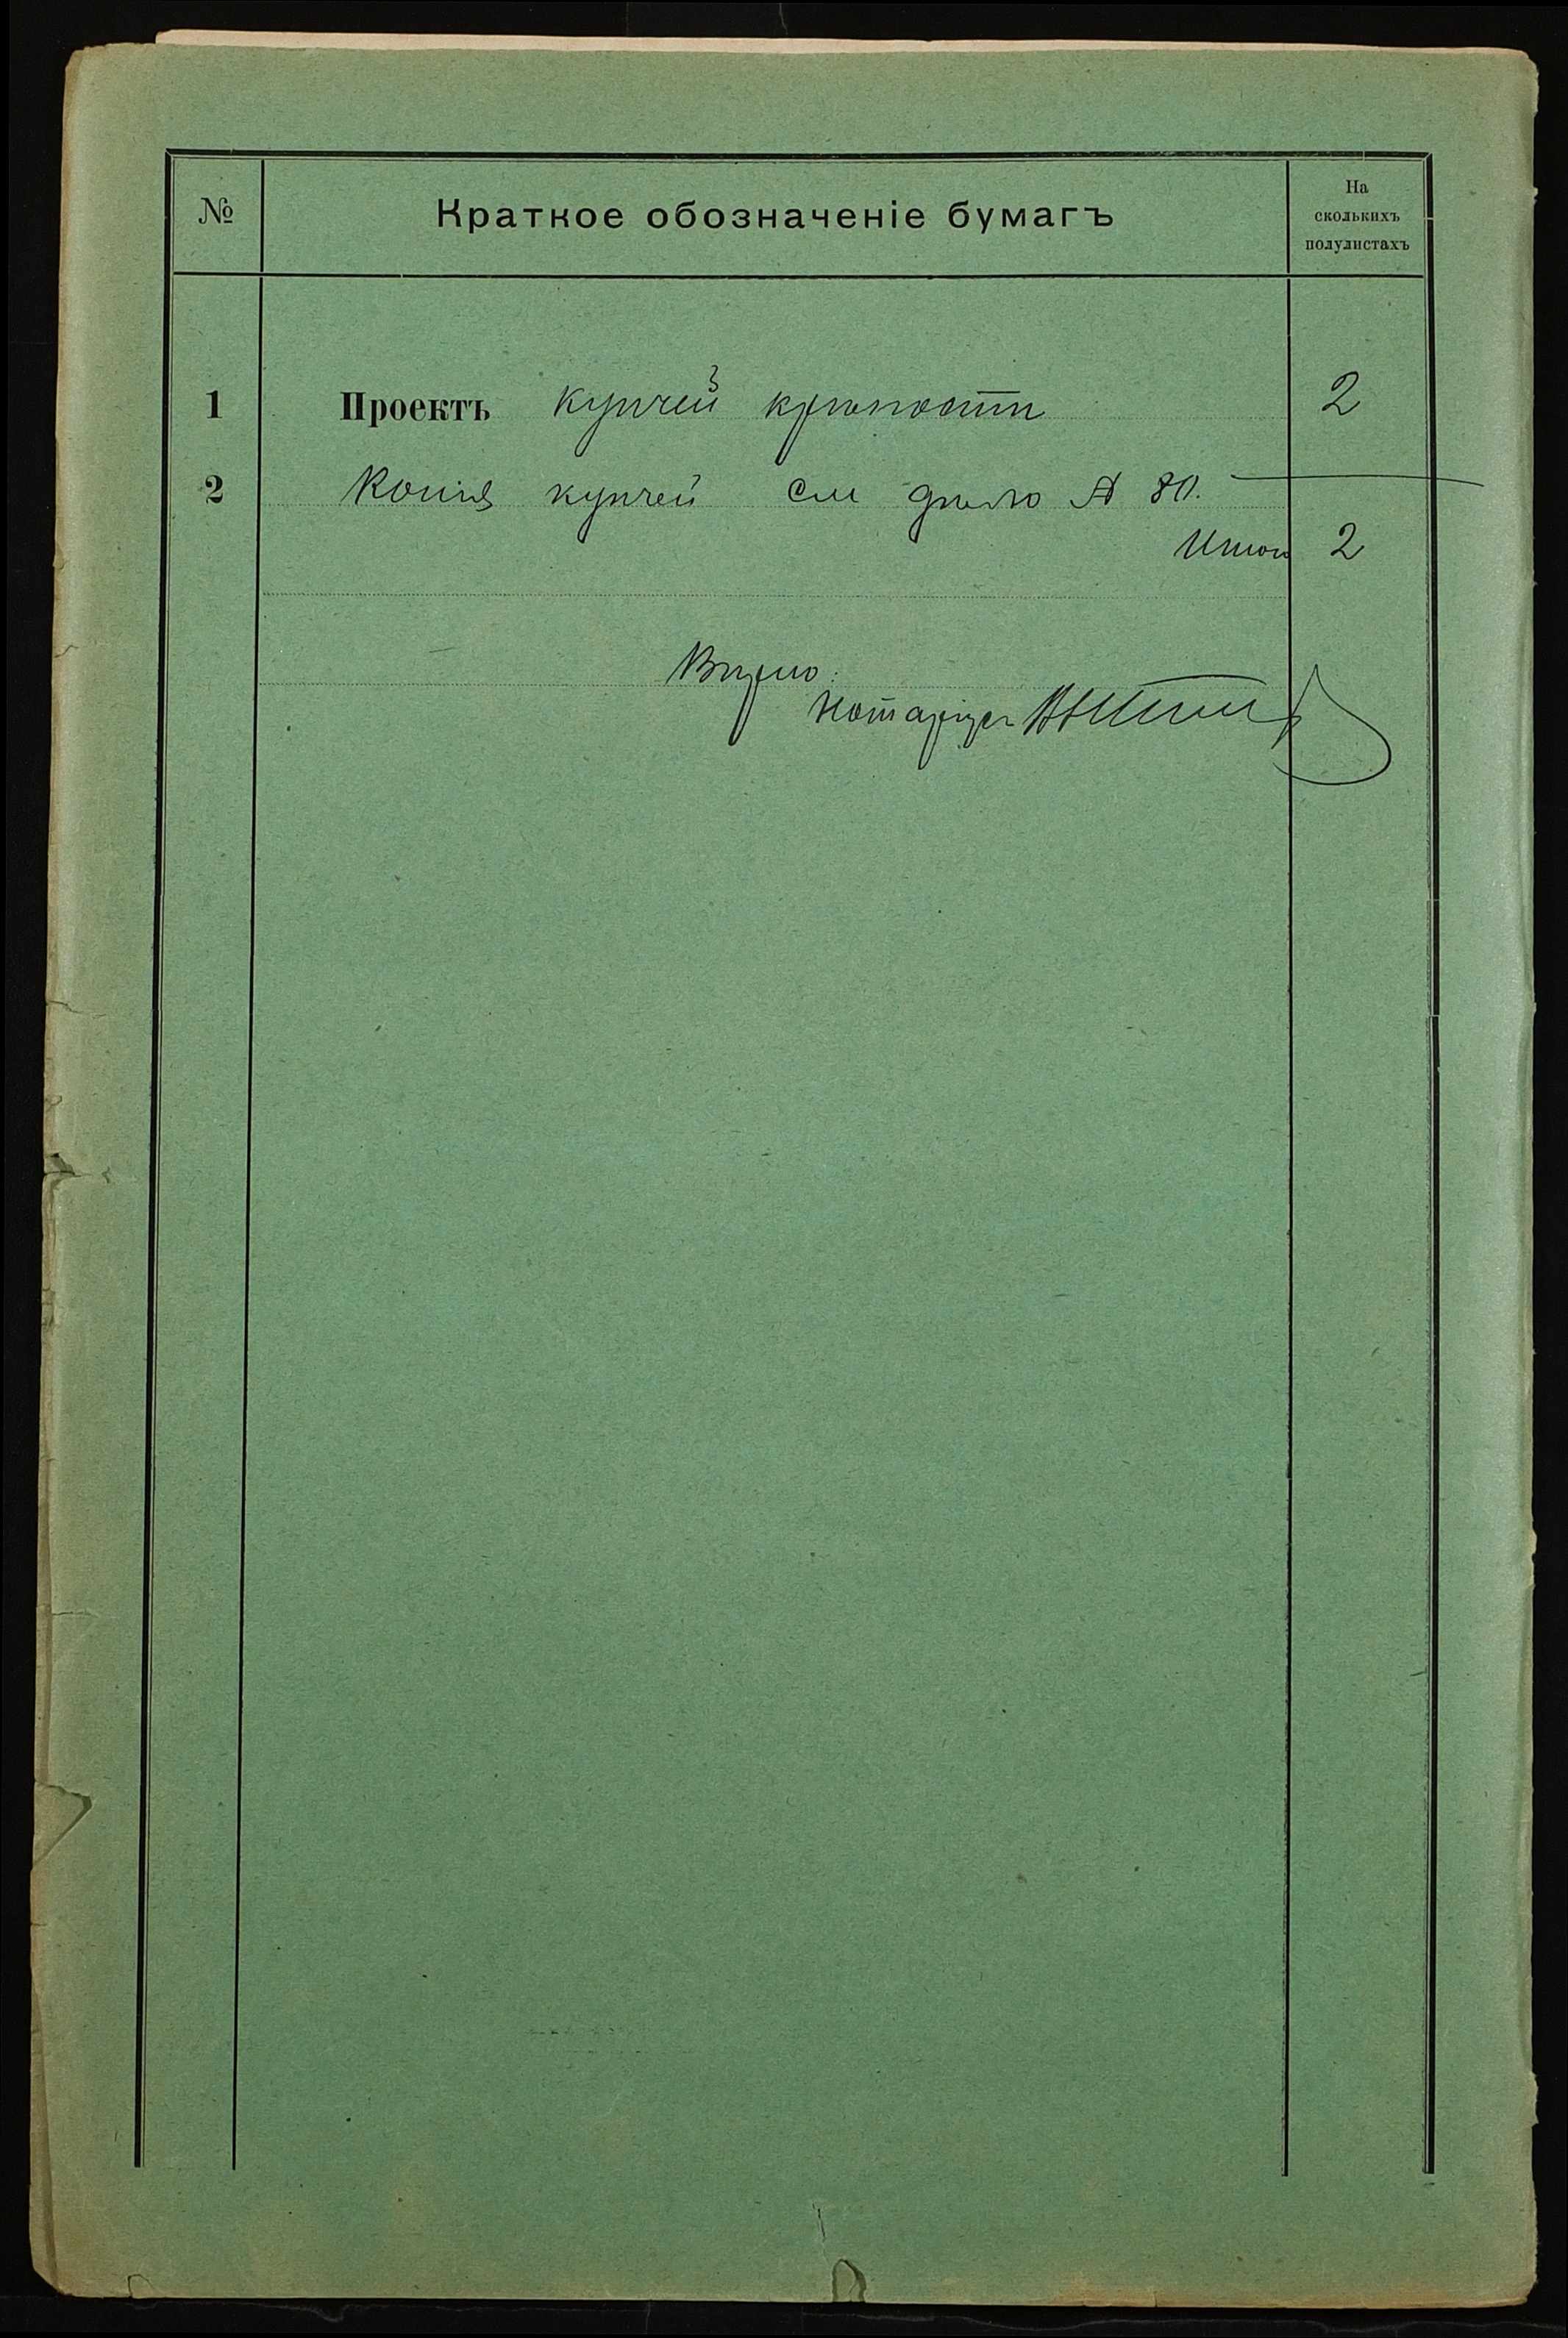 № Краткое обозначеніе бумагъ На
сколькихъ
полулистахъ
1 Проектъ купчей крѣпости 2
2 Копія купчей см дѣло № 80.
Итого 2
Вѣрно:
Нотаріусъ